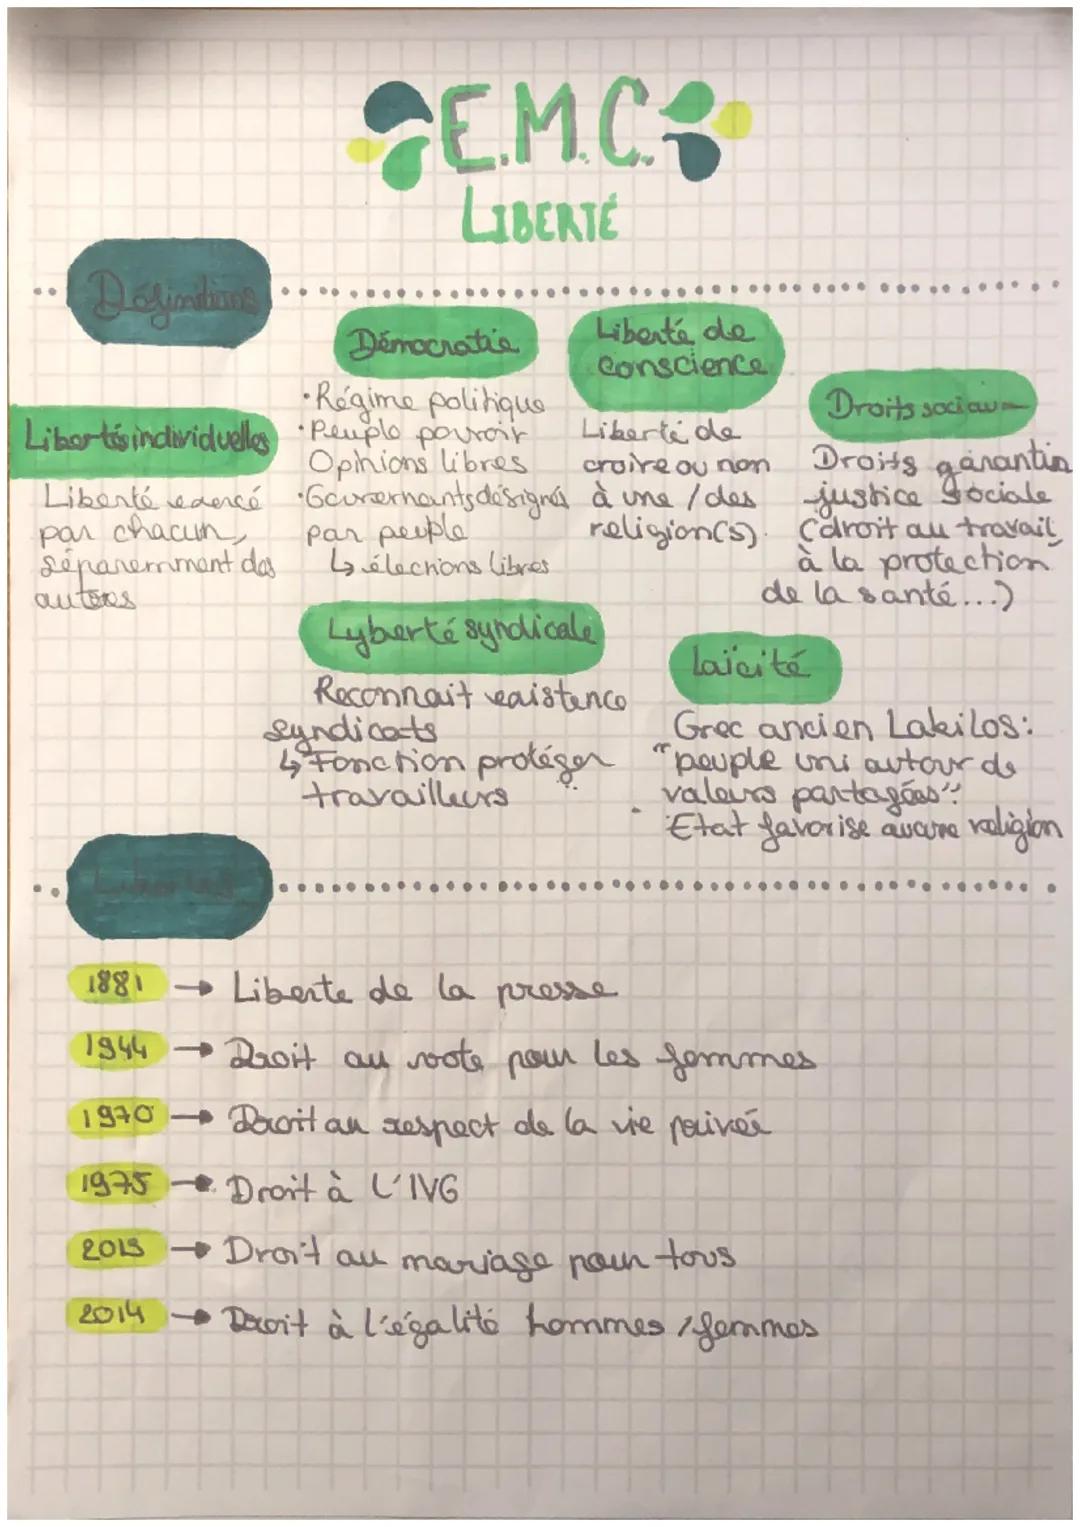 E.M.C.
LIBERTÉ
Définitions
Libertés individuelles
Liberté exercé
par chacun,
séparemment des
autres
Démocratie
• Régime politique
• Peuple pouvoir
Opinions libres
• Gouvernants désignés
par peuple
↳ élections libres
Liberté de
conscience
Liberté de
croire ou non
à une / des
religion(s).
Droits sociaux
Droits garantin
justice sociale
(droit au travail,
à la protection
de la santé...)
Lyberté syndicale
Reconnait existence
syndicats
↳ Fonction protéger
travailleurs
Laïcité
Grec ancien Lakilos:
"peuple uni autour de
valeurs partagées".
Etat favorise aucune religion
Libertés
1881 → Liberte de la presse
1944 → Droit au vote pour les femmes
1970 → Droit au respect de la vie privée
1975 → Droit à L'IVG
2013 → Droit au mariage pour tous
2014 → Droit à l'égalité hommes / femmes